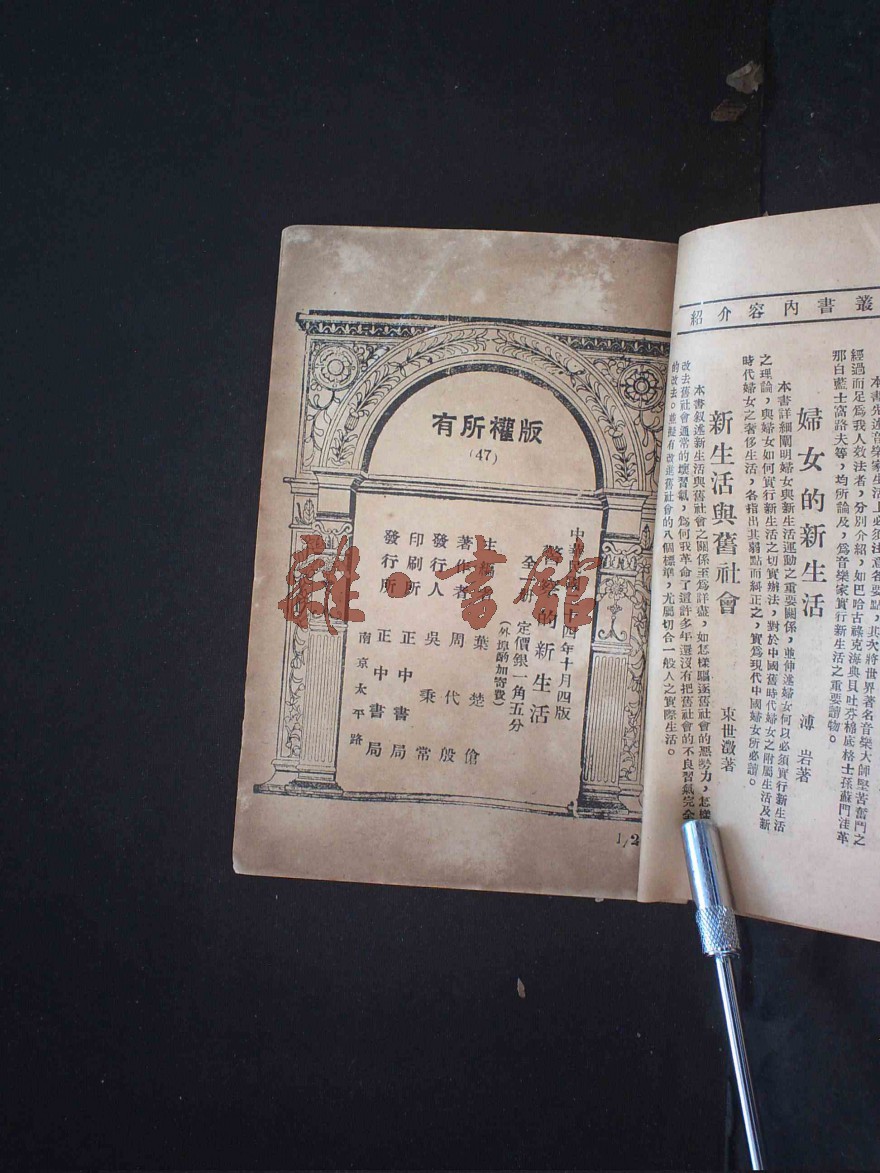 叢書內容介紹
本書先述音樂家生活上必須注意各要點，其次將世界著名音樂大師堅苦奮鬥之
經過而足為我人效法者，分別介紹，如巴哈古祿克海典貝吐芬棉底格士孫蘇門洼革
那白藍士富路夫等，均所論及，為音樂家實行新生活之重要讀物。
婦女的新生活 溥岩著
本書詳細闡明婦女與新生活運動之重要關係，並伸述婦女何以必須實行新生活
之理論，與婦女如何實行新生活之切實辦法，對於中國舊時代婦女之附屬生活及新
時代婦女之奢侈生活，各指出其弱點而糾正之，實為現代中國婦女所必讀。
新生活與舊社會 束世澂著
本書叙述新生活與舊社會之關係至為詳盡，如怎樣驅逐舊社會的惡勢力，怎樣
改去舊社會通常的壞習氣，為何我革命了這許多年還沒有把舊社會的不良習氣完全
的改去。並擬有改進舊社會的八個標準，尤屬切合一般人之實際生活。
版權所有
(47)
中華民國二十四年十月四版
的新生活
全一冊 定價銀一角五分
(外埠酌加寄費)
主編者 葉楚傖
著作者 周代殷
發行人 吳秉常
印刷所 正中書局
發行所 正中書局
南京太平路
1/2
雜·書館